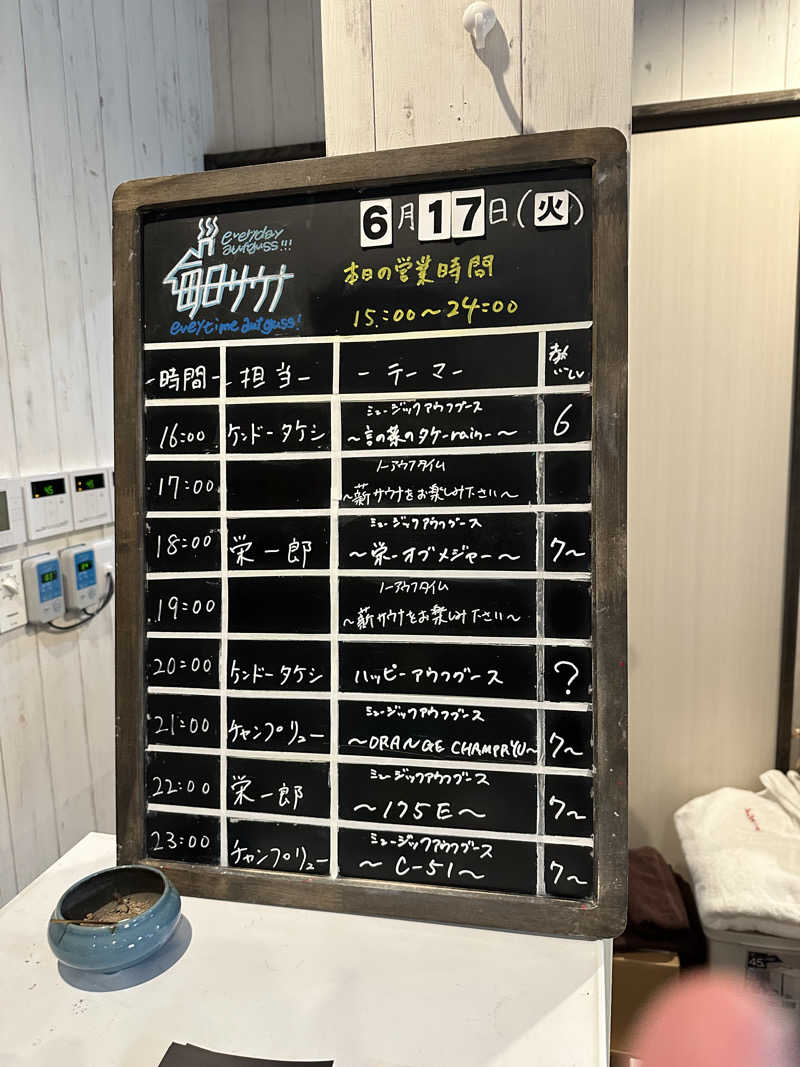 6月17日(火)
everyday
aufguss!!!
毎日サウナ
eveytime aufguss!
本日の営業時間
15:00〜24:00
-時間- -担当- -テーマ- 熱いLv
ミュージックアウフグース
16:00 ケンドータケシ 〜言の葉のタケ-rain-〜 6
ノーアウフタイム
17:00 〜薪サウナをお楽しみ下さい〜
ミュージックアウフグース
18:00 栄一郎 〜栄一オブメジャー〜 7〜
ノーアウフタイム
19:00 〜薪サウナをお楽しみ下さい〜
20:00 ケンドータケシ ハッピーアウフグース ?
ミュージックアウフグース
21:00 チャンプリュー 〜ORANGE CHAMPRYU〜 7〜
ミュージックアウフグース
22:00 栄一郎 〜175E〜 7〜
ミュージックアウフグース
23:00 チャンプリュー 〜C-51〜 7〜
45